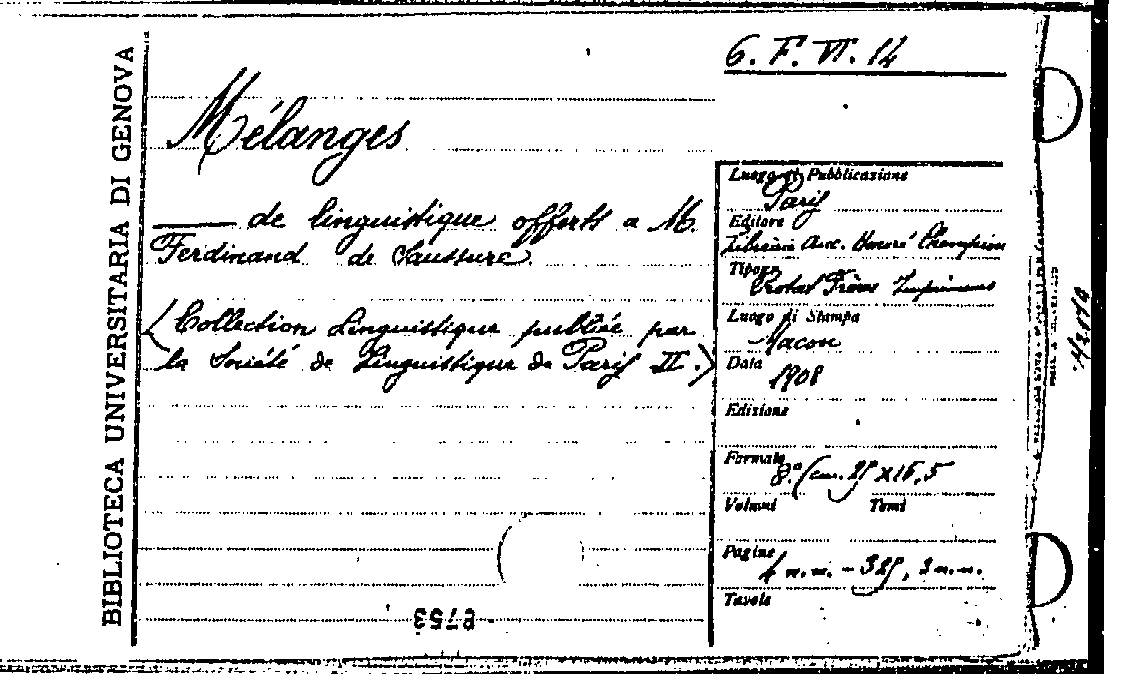 BIBLIOTECA UNIVERSITARIA DI GENOVA
6. F. VI. 14
Mélanges
de linguistique offerts a M.
Ferdinand de Saussure
(Collection Linguistique publiée par
la Société de Linguistique de Paris II.)
Luogo di Pubblicazione
Paris
Editore
Librairie Anc. Honoré Champion
Tipogr.
Protat Frères Imprimeurs
Luogo di Stampa
Macon
Data
1908
Edizione
Formato
8.° (cm. 25 x 16,5
Volumi Tomi
Pagine
4 n.n. - 325, 3 n.n.
Tavole
8753